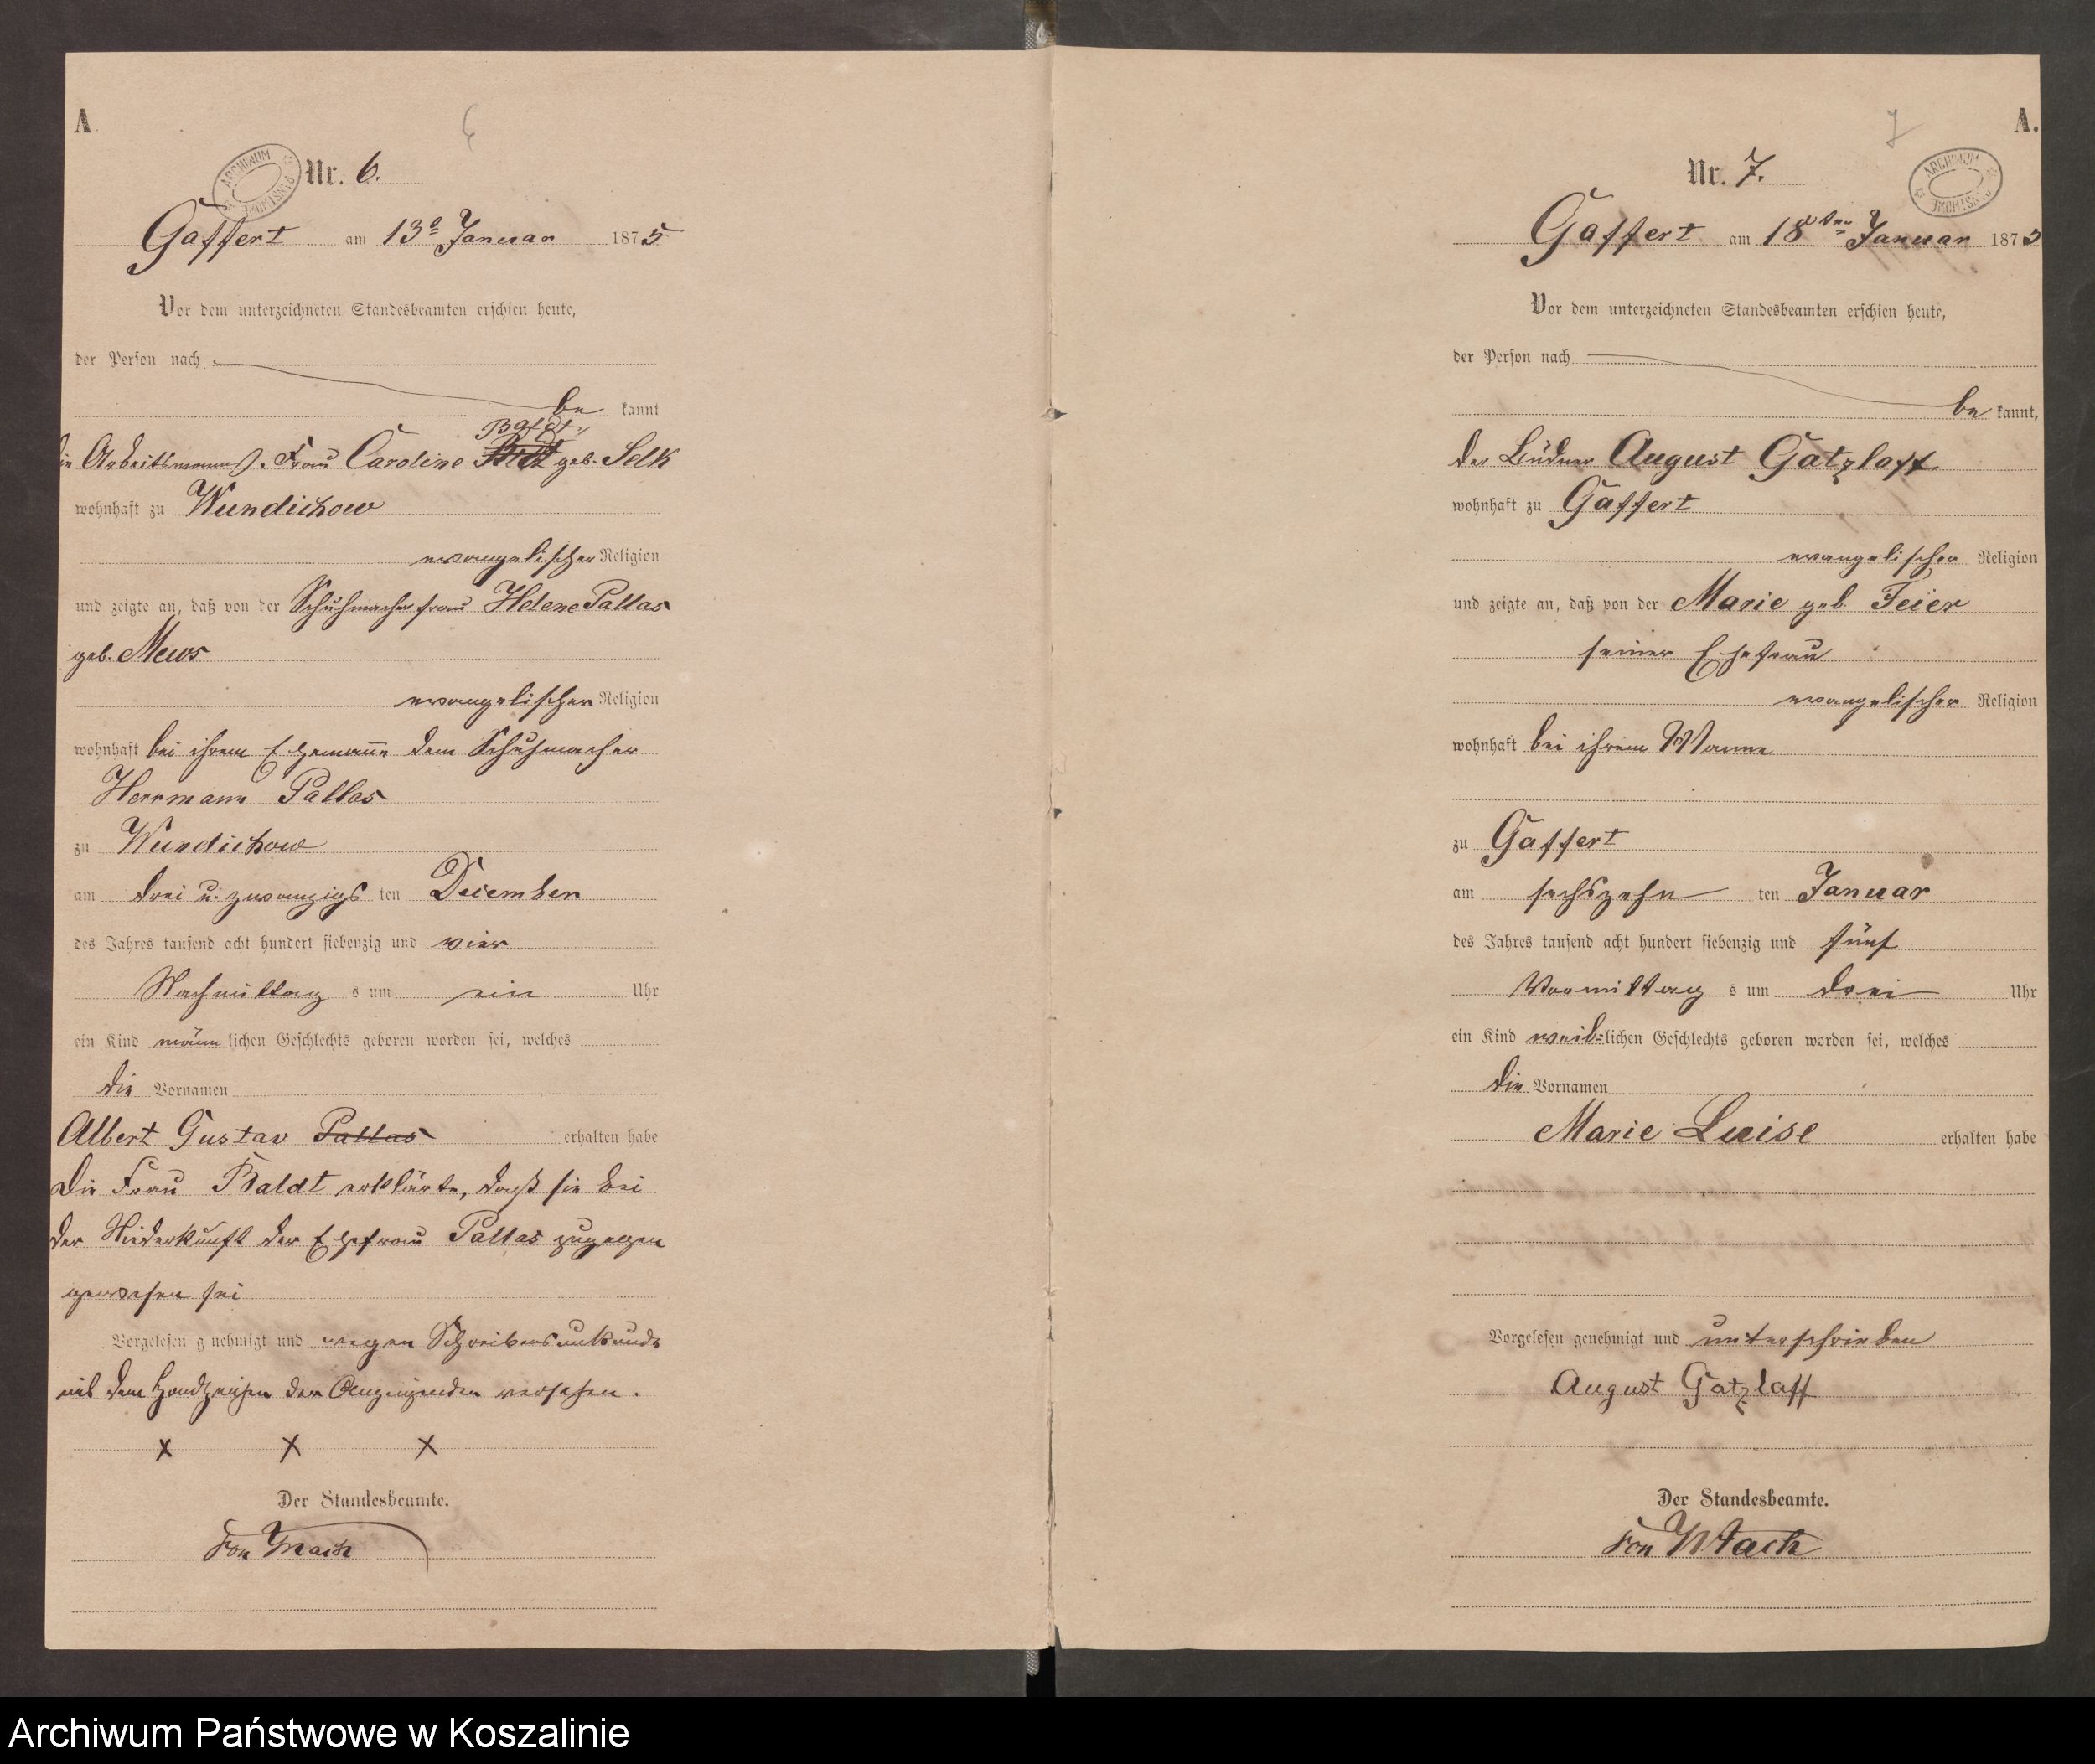 A
6
Nr. 6.
ARCHIWUM PAŃSTWOWE
Gaffert am 13t Januar 1875
Vor dem unterzeichneten Standesbeamten erschien heute,
der Person nach
be kannt
Baldt
die Arbeitsmanns Frau Caroline geb. Selk
wohnhaft zu Wundichow
evangelischer Religion
und zeigte an, daß von der Schuhmacherfrau Helene Pallas
geb. Mews
evangelischer Religion
wohnhaft bei ihrem Ehemanne dem Schuhmacher
Herrmann Pallas
zu Wundichow
am drei u. zwanzigs ten December
des Jahres tausend acht hundert siebenzig und vier
Nachmittag s um ein Uhr
ein Kind männ lichen Geschlechts geboren worden sei, welches
die Vornamen
Albert Gustav Pallas erhalten habe
Die Frau Baldt erklärte, daß sie bei
der Niederkunft der Ehefrau Pallas zugegen
gewesen sei
Vorgelesen g nehmigt und wegen Schreibensunkunde
mit dem Handzeichen der Anzeigenden versehen.
x x x
Der Standesbeamte.
von
A.
7
Nr. 7.
ARCHIWUM PAŃSTWOWE
Gaffert am 18ten Januar 1875
Vor dem unterzeichneten Standesbeamten erschien heute,
der Person nach
be kannt,
der Büdner August Gatzlaff
wohnhaft zu Gaffert
evangelischer Religion
und zeigte an, daß von der Marie geb. Feier
seiner Ehefrau
evangelischer Religion
wohnhaft bei ihrem Manne
zu Gaffert
am sechszehn ten Januar
des Jahres tausend acht hundert siebenzig und fünf
Vormittag s um drei Uhr
ein Kind weib=lichen Geschlechts geboren worden sei, welches
die Vornamen
Marie Luise erhalten habe
Vorgelesen genehmigt und unterschrieben
August Gatzlaff
Der Standesbeamte.
von
Archiwum Państwowe w Koszalinie